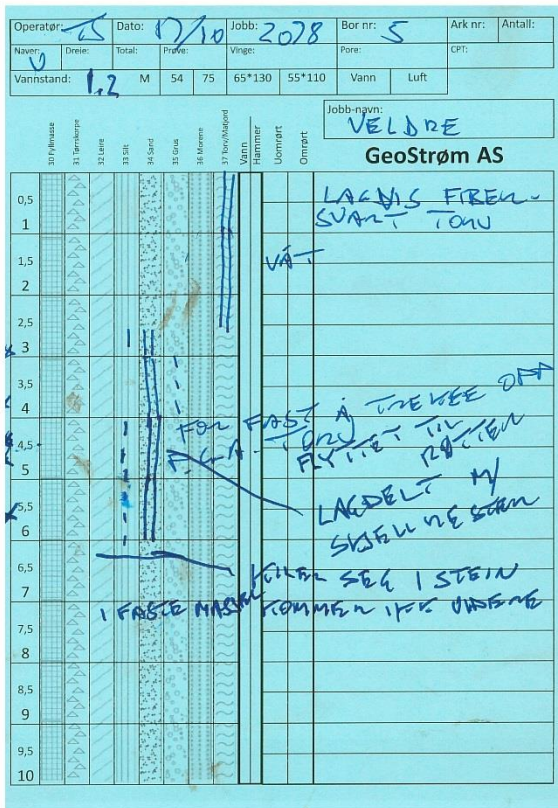 Operatør: TS Dato: 17/10 Jobb: 2078 Bor nr: 5 Ark nr: Antall:
Naver: U Dreie: Total: Prøve: Vinge: Pore: CPT:
Vannstand: 1,2 M 54 75 65*130 55*110 Vann Luft
Jobb-navn:
VELDRE
GeoStrøm AS
30 Fyllmasse 31 Tørrskorpe 32 Leire 33 Silt 34 Sand 35 Grus 36 Morene 37 Torv/Matjord Vann Hammer Uomrørt Omrørt
0,5
SVART TORV
1
1,5 VÅT
2
2,5
3
3,5
4
FOR FAST Å TREKKE OPP
P.G.A. TORV FLYTTET TIL
4,5
5
LAGDELT M/
SKJELLRESTER
5,5
6
6,5 KILER SEG I STEIN
7
I FASTE MASSER KOMMER IKK VIDERE
7,5
8
8,5
9
9,5
10